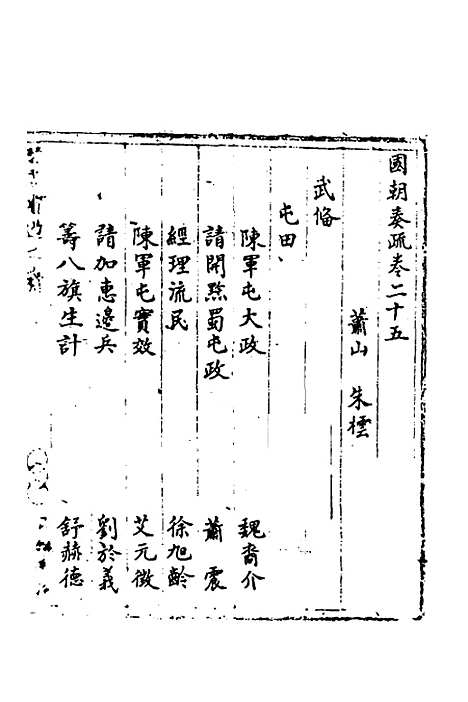 國朝奏疏卷二十五
蕭山 朱橒
武偹
屯田
陳軍屯大政 魏裔介
請開㸃蜀屯政 蕭震
經理流民 徐旭齡
陳軍屯實效 艾元徵
請加惠邊兵 劉於義
籌八旗生計 舒赫德